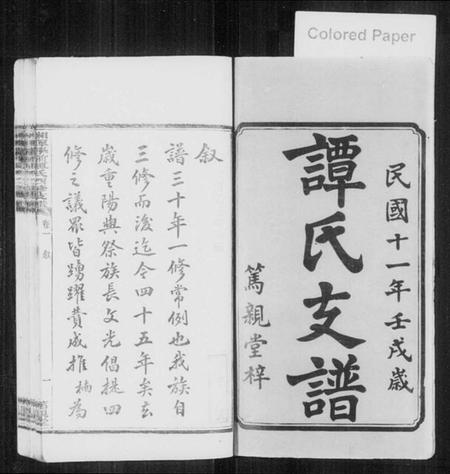 Colored Paper
民國十一年壬戌歲
譚氏支譜
篤親堂梓
敘
譜三十年一修常例也我族自
三修而後迄今四十五年矣玄
歲重陽與祭族長文光倡提四
修之議眾皆踴躍贊成推楠為
卷一
敘
一